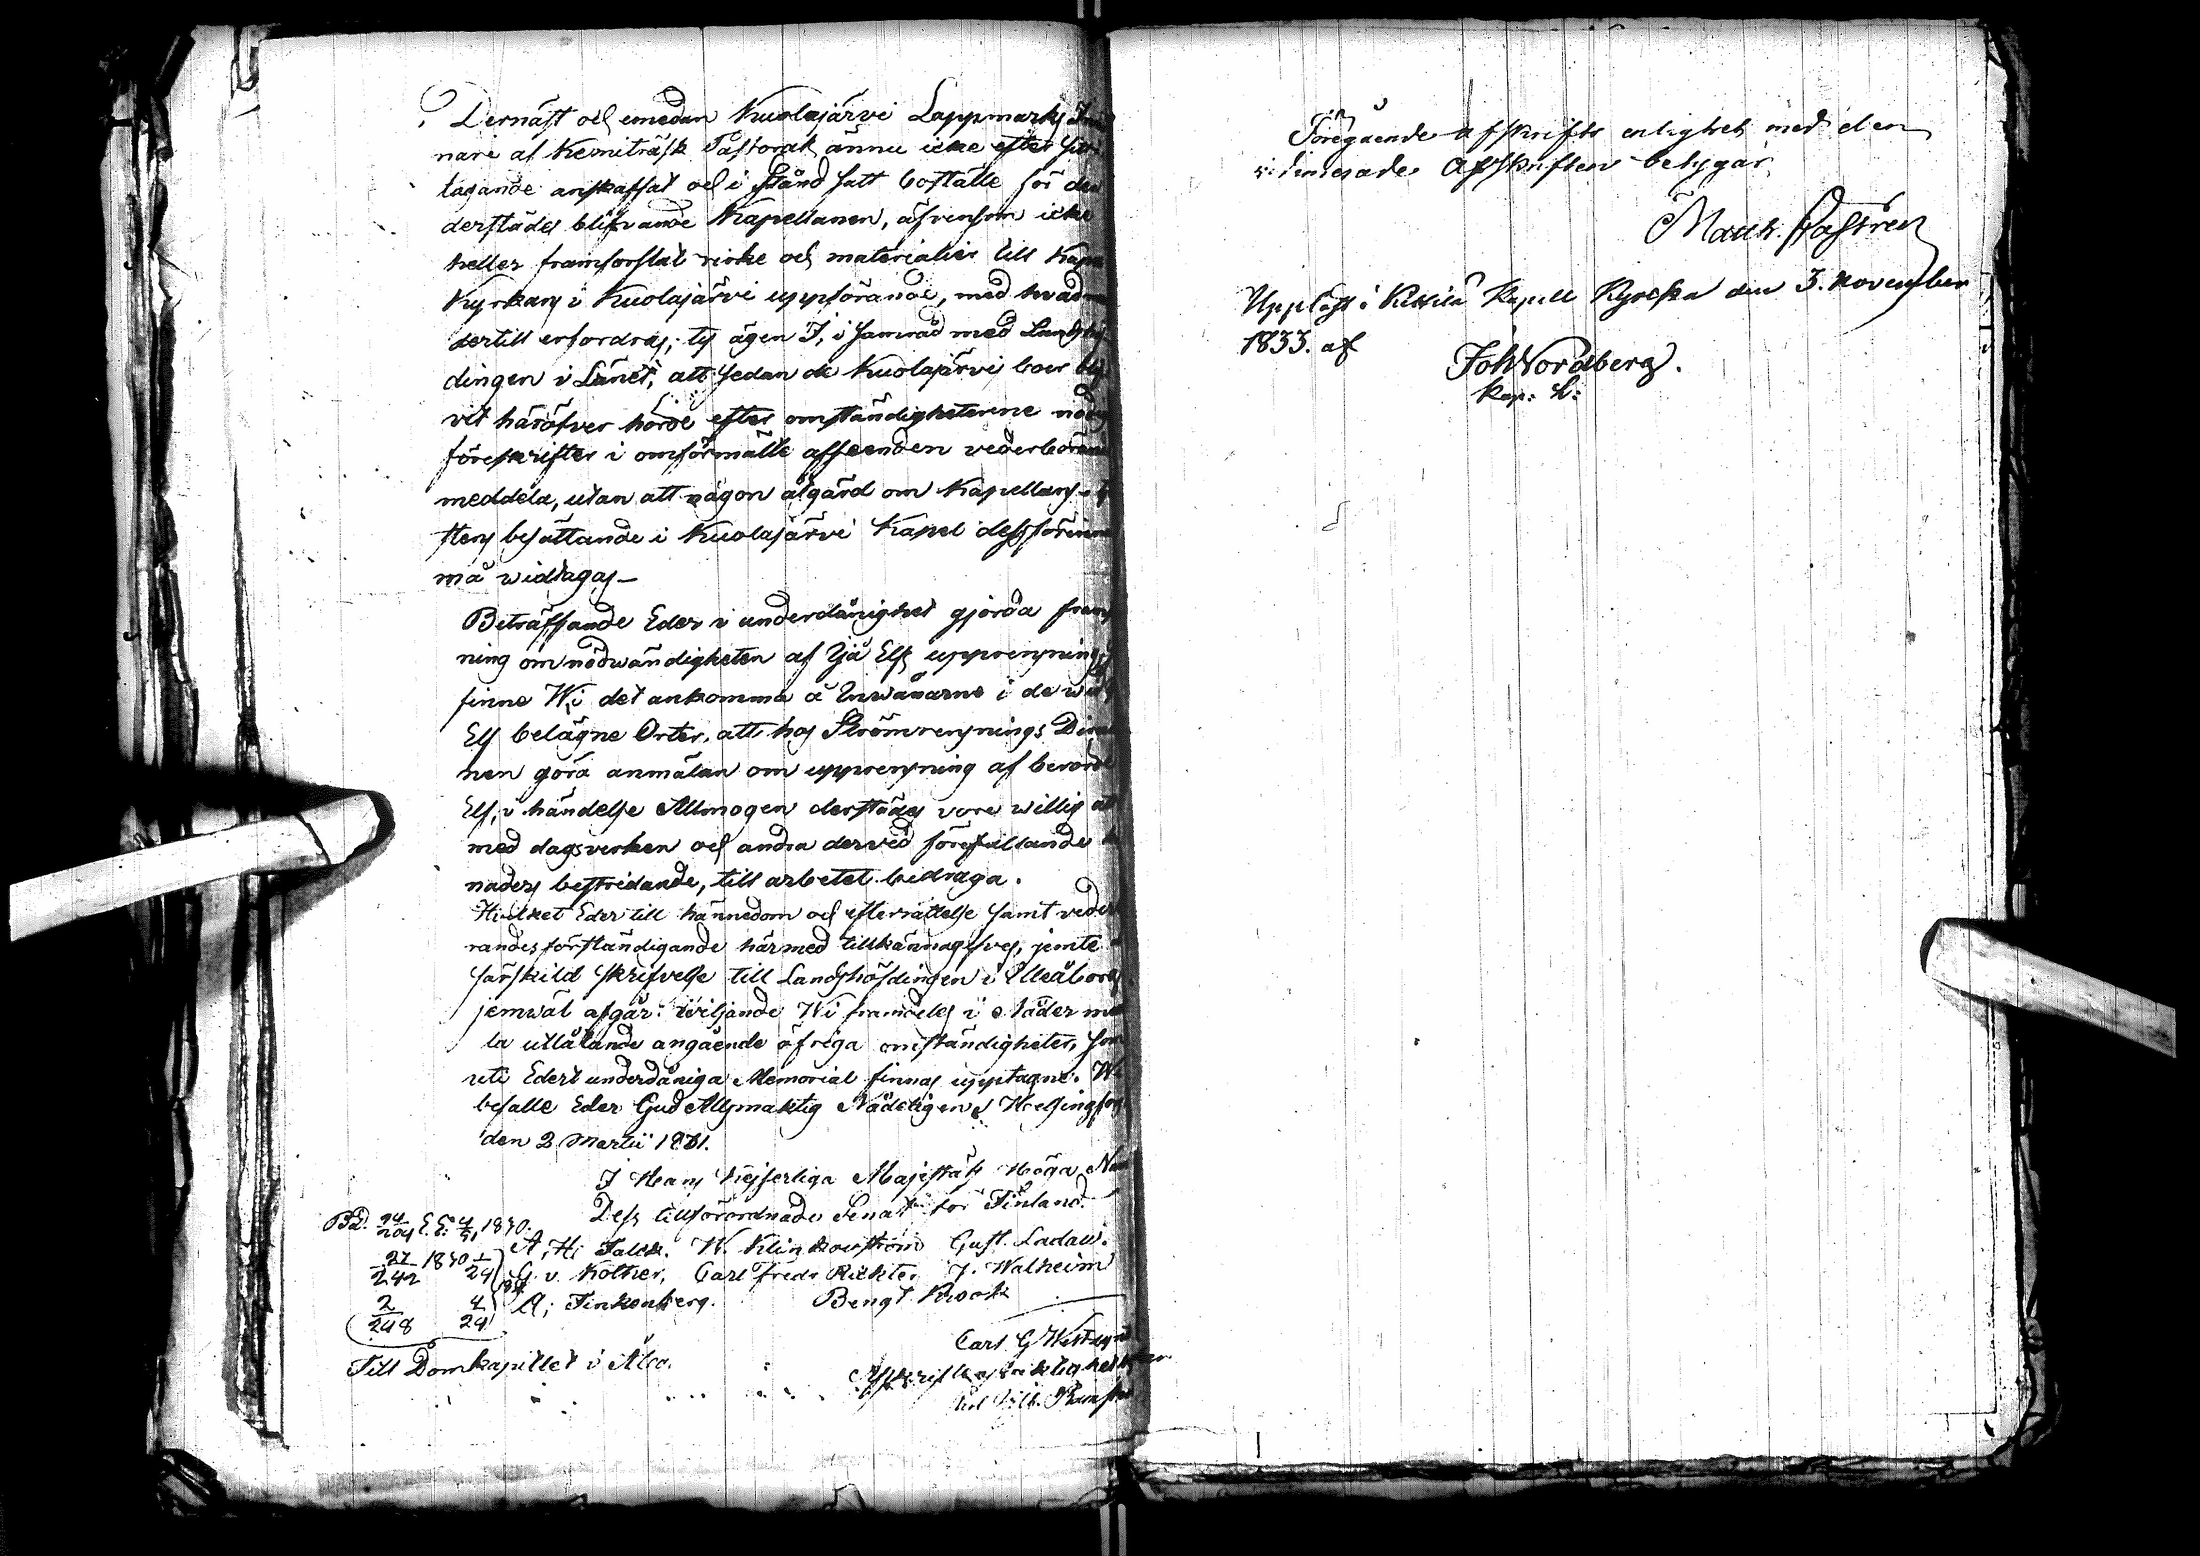 Dernäst och emedan Kuolajärvi Lappmarks In
nare af Kemiträsk Pastorat ännu icke efter
tagande anskaffat och i stånd satt boställe för den
derstädes blifvande Kapellanen, äfvensom icke
heller framforslat virke och materialier till Kape
Kyrkans i Kuolajärvi uppförande, med hvad
dertill erfordras; ty ägen I, i samråd med Landshöf
dingen i Länet, att sedan de Kuolajärvi boer blif
vit häröfver hörde efter omständigheterne nödig
föreskrifter i omförmälte afseenden vederböran
meddela, utan att någon åtgärd om Kapellans
stens besättande i Kuolajärvi Kapel dessförinnan
må widtagas
Beträffande Eder i underdånighet gjorda fram
ning om nödwändigheten af Ijå Elfs upprensning
finne Wi det ankomma å Inwånarne i de wid
Elf belägne Orter, att hos Strömrensnings Dire
nen göra anmälan om upprensning af berörde
Elf, i händelse Allmogen derstädes vore willig att
med dagsverken och andra dervid förefallande
naders bestridande, till arbetet bidraga.
Hvilket Eder till kännedom och efterrättelse samt veder
randes förständigande härmed tillkännagifves, jemte
särskild skrifvelse till Landshöfdingen i Uleåborgs
jemwäl afgår: wiljande Wi framdeles i Nåder me
la utlåtande angående öfriga omständigheter, som
uti Edert underdåniga Memorial finnas upptagne. Wi
befalle Eder Gud Allsmäktig Nådeligen. Helsingfors
den 2 Martii 1831.
I Hans Kejserliga Majestäts Höga Nam
Dess tillförordnade Senat för Finland.
A. H. Falck. W. Klinckowström Gust. Ladau.
G. v. Kothen, Carl Fredr Richter J. Walheim
A. Finkenberg. Bengt Krook
Carl G
Till Domkapitlet i Åbo.
Afskriftens riktighet
Föregående afskrifts enlighet med den
vidimerade Afskriften betygar
Math. Castrén
Uppläst i Kittilä Kapell Kyrcka den 3. November
1833. af
Joh Nordberg.
Kap: L: